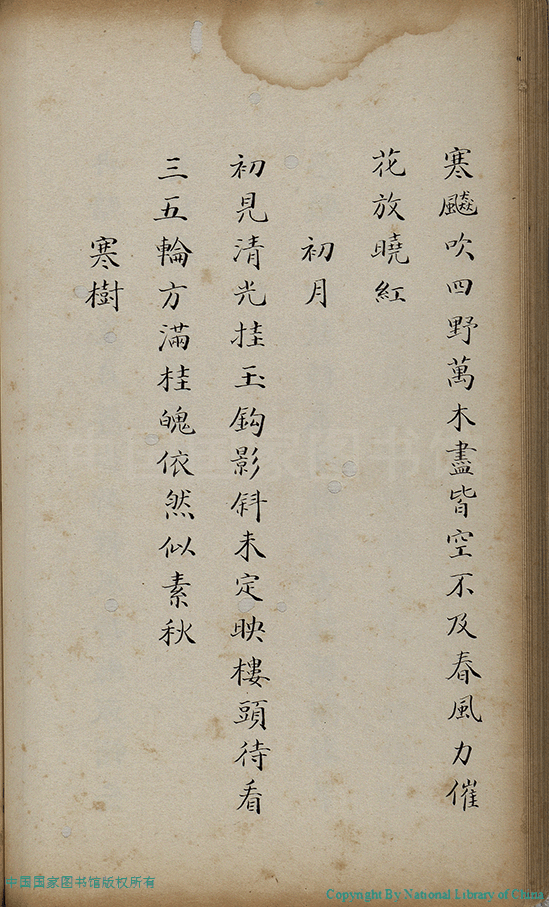 寒飈吹四野萬木盡皆空不及春風力催
花放曉紅
初月
初見清光挂玉鈎影斜未定映樓頭待看
三五輪方滿桂魄依然似素秋
寒樹
中国国家图书馆版权所有
Copyright By National Library of China